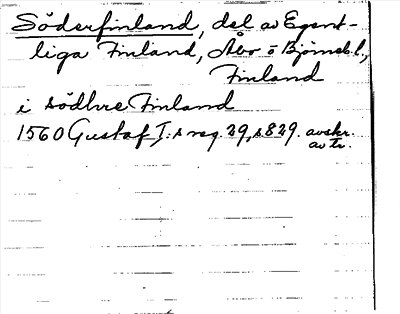 Söderfinland, del av Egent-
liga Finland, Åbo o Björneb.l,
Finland
i södhre Finland
1560 Gustaf I:s reg. 29, s 829. avskr.
av tr.